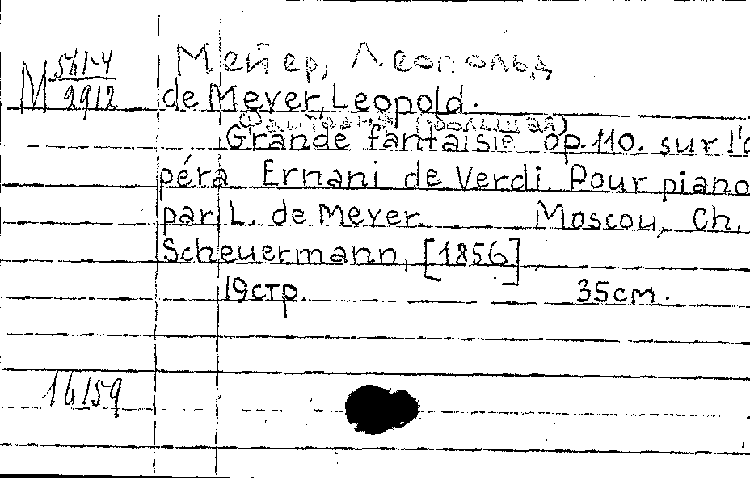 М 561-4/2912
Мейер, Леопольд
de Meyer, Leopold.
Фантазия (большая)
Grande fantaisie op. 110. sur l'o
péra Ernani de Verdi. Pour piano
par L. de Meyer Moscou, Ch.
Scheuermann, [1856]
19 стр. 35 см.
16159